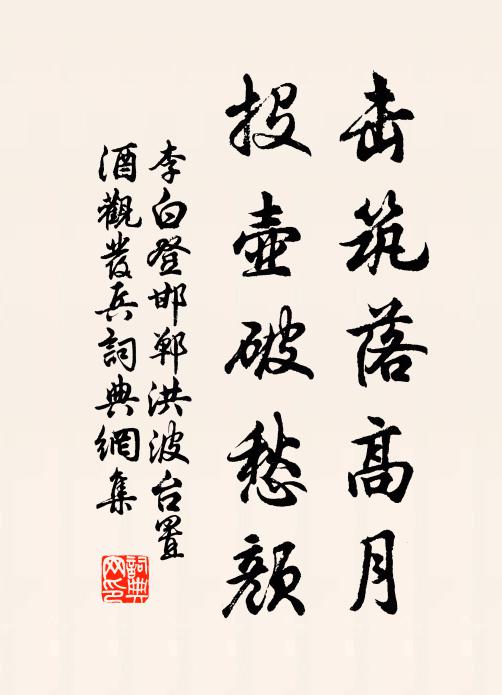 击筑落高月
投壶破愁颜
李白登邯郸洪波台置
酒觀发兵詞典網集
詞典网印